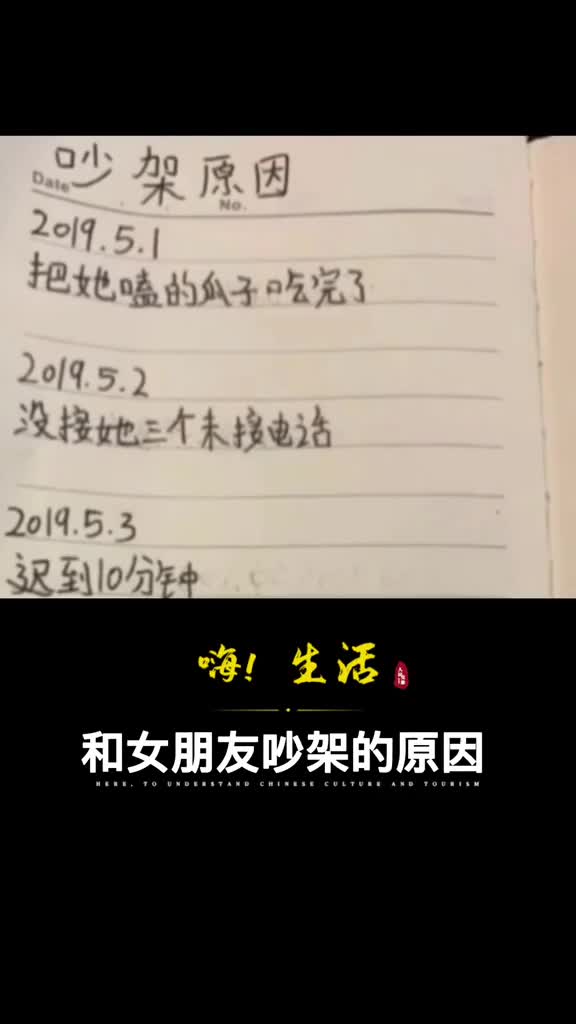 吵架原因
Date
No.
2019.5.1
把她嗑的瓜子吃完了
2019.5.2
没接她三个未接电话
2019.5.3
迟到10分钟
嗨! 生活
和女朋友吵架的原因
HERE, TO UNDERSTAND CHINESE CULTURE AND TOURISM